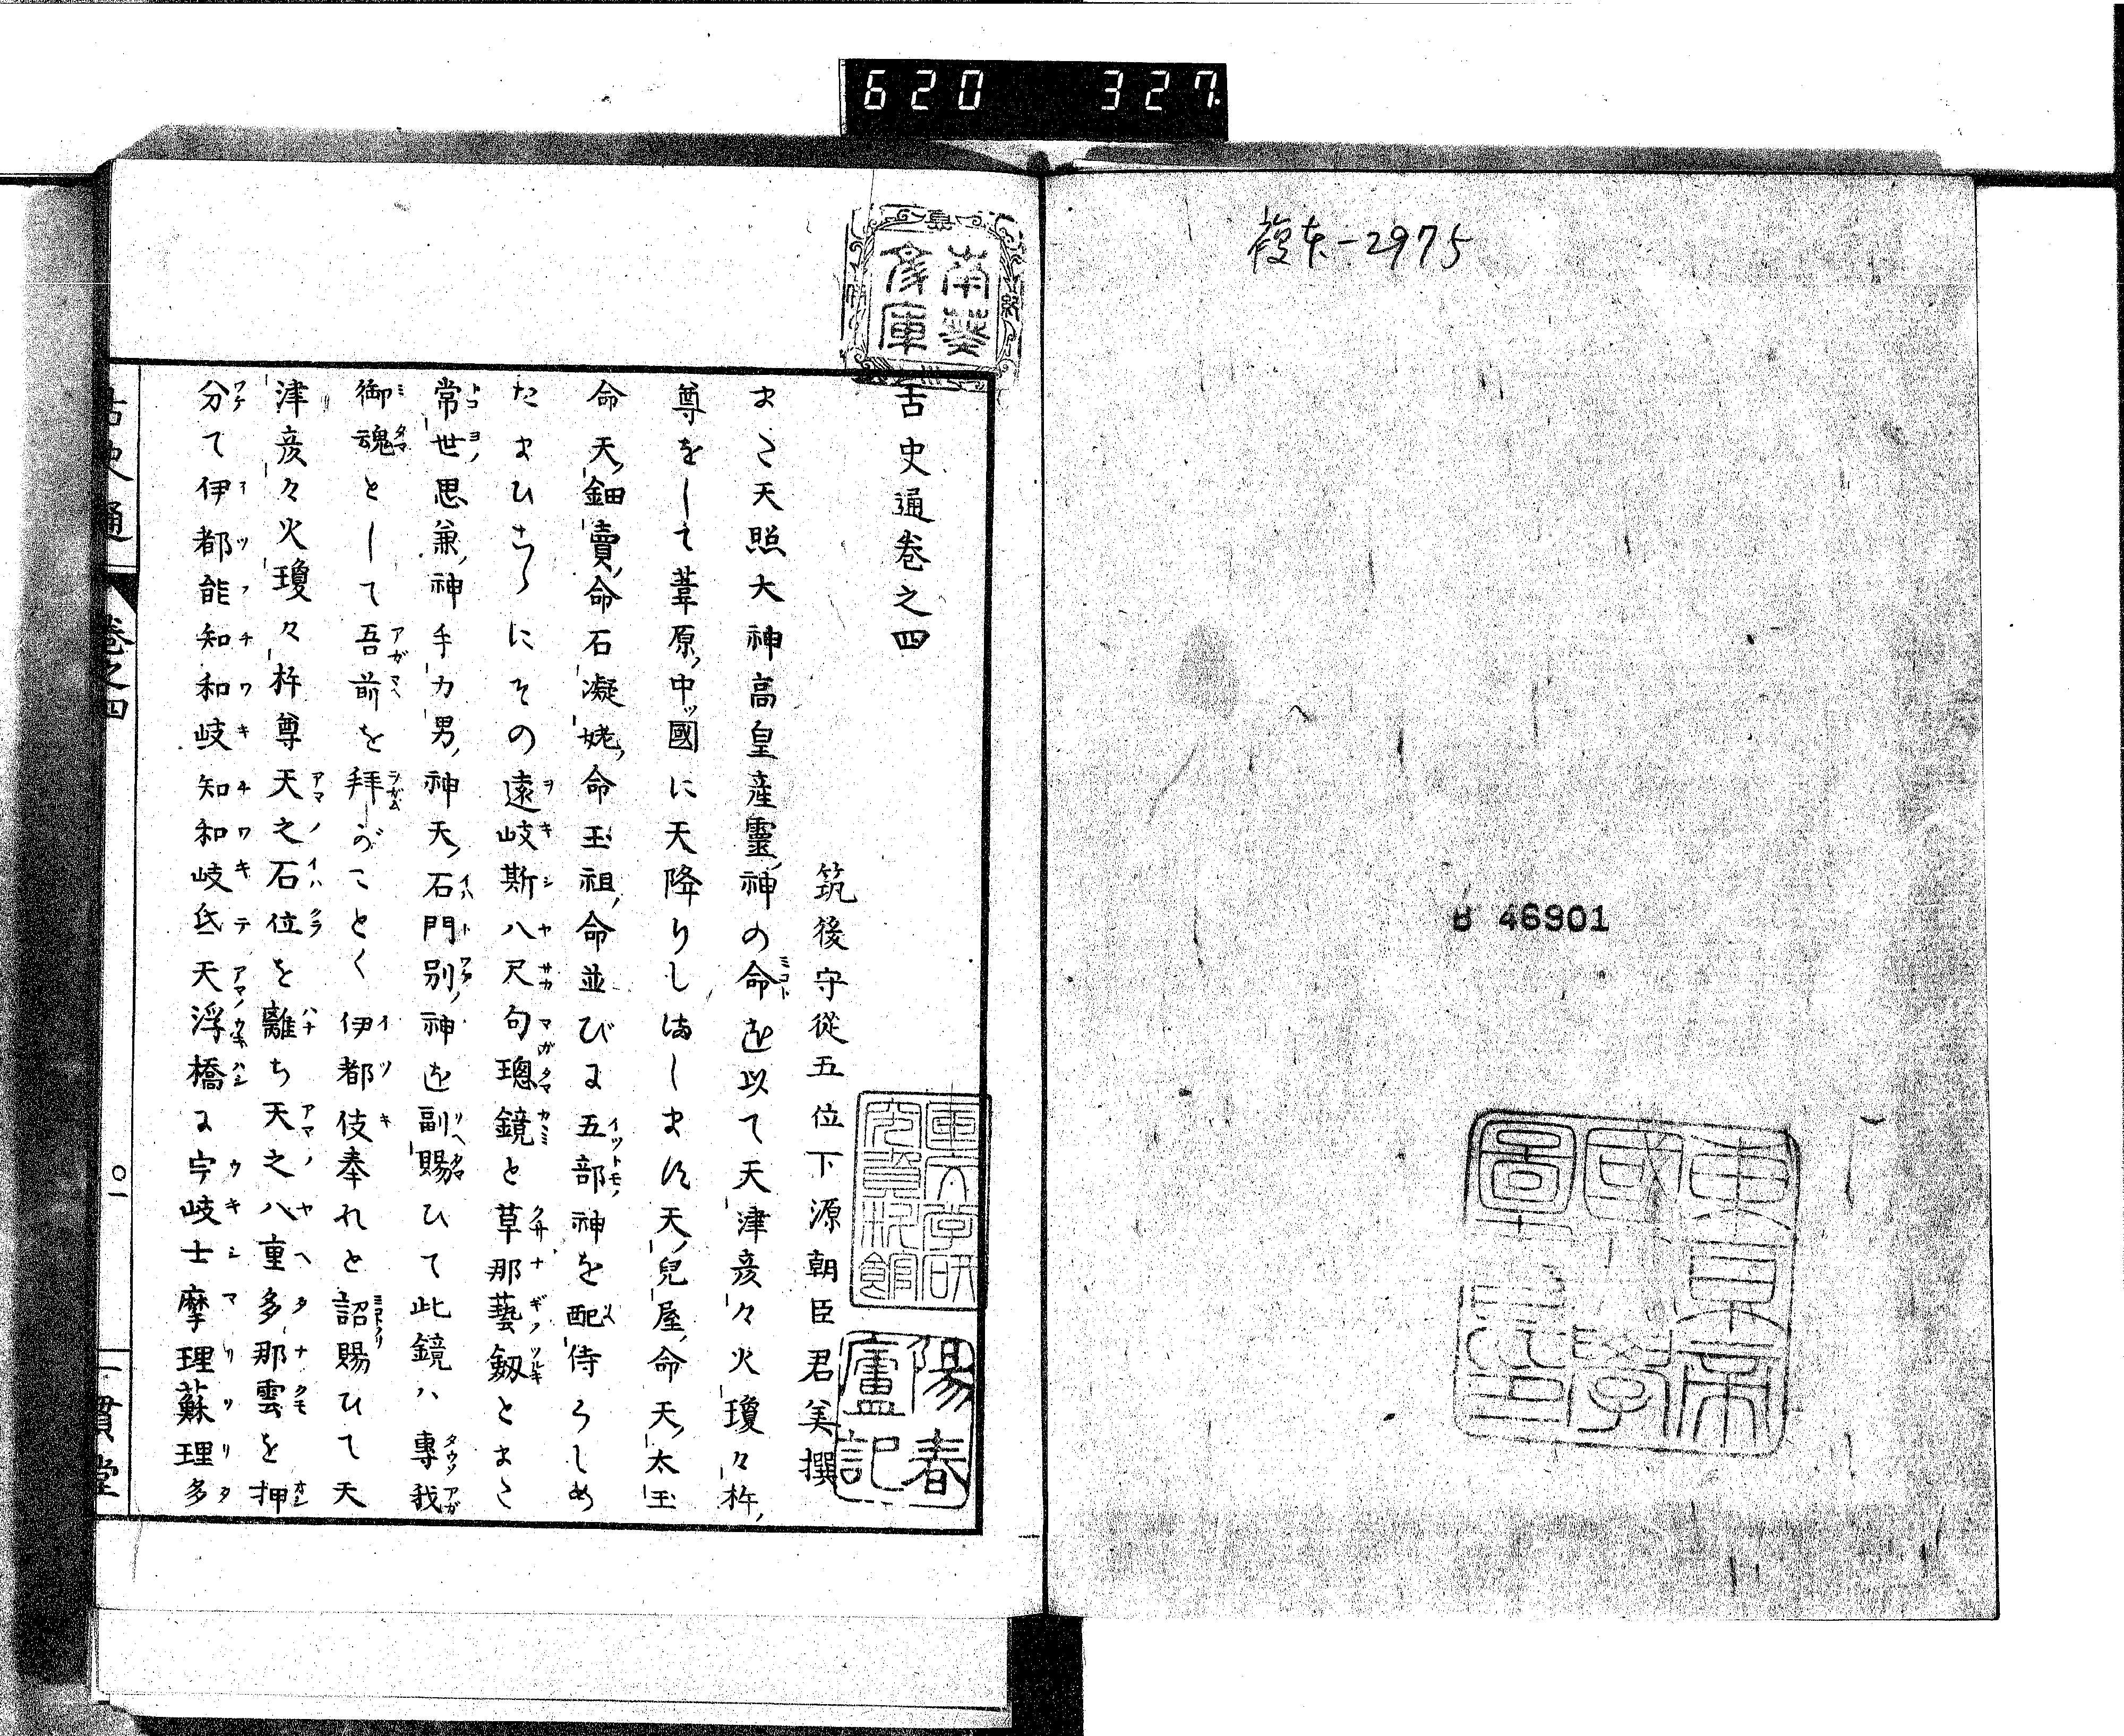 620 327
複本-2975
B 46901
東京帝
國大學
圖書印
南葵
文庫
古史通卷之四
筑後守從五位下源朝臣君美撰
まさに天照大神高皇産靈神の命を以て天津彦々火瓊々杵
尊をして葦原中ッ國に天降りしまします天兒屋命天太玉
命天鈿賣命石凝姥命玉祖命並びに五部神を配侍らしめ
たまひき
にその遠岐斯八尺句璁鏡と草那藝劔とまた
常世思兼神手力男神天石門別神を副賜ひて此鏡ハ專我
御魂として吾前を拜がことく伊都伎奉れと詔賜ひて天
津彦々火瓊々杵尊天之石位を離ち天之八重多那雲を押
分て伊都能知和岐知和岐氐天浮橋に宇岐士摩理蘇理多
陽春
廬記
古史通
卷之四
〇一
一貫堂